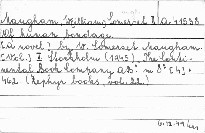 Maugham, William Somerset
Of human bondage.
(A novel) by W. Somerset Maugham.
Stockholm (1945) The Conti-
nental Book Company A.B.
462 (Zephyr books vol. 22.)